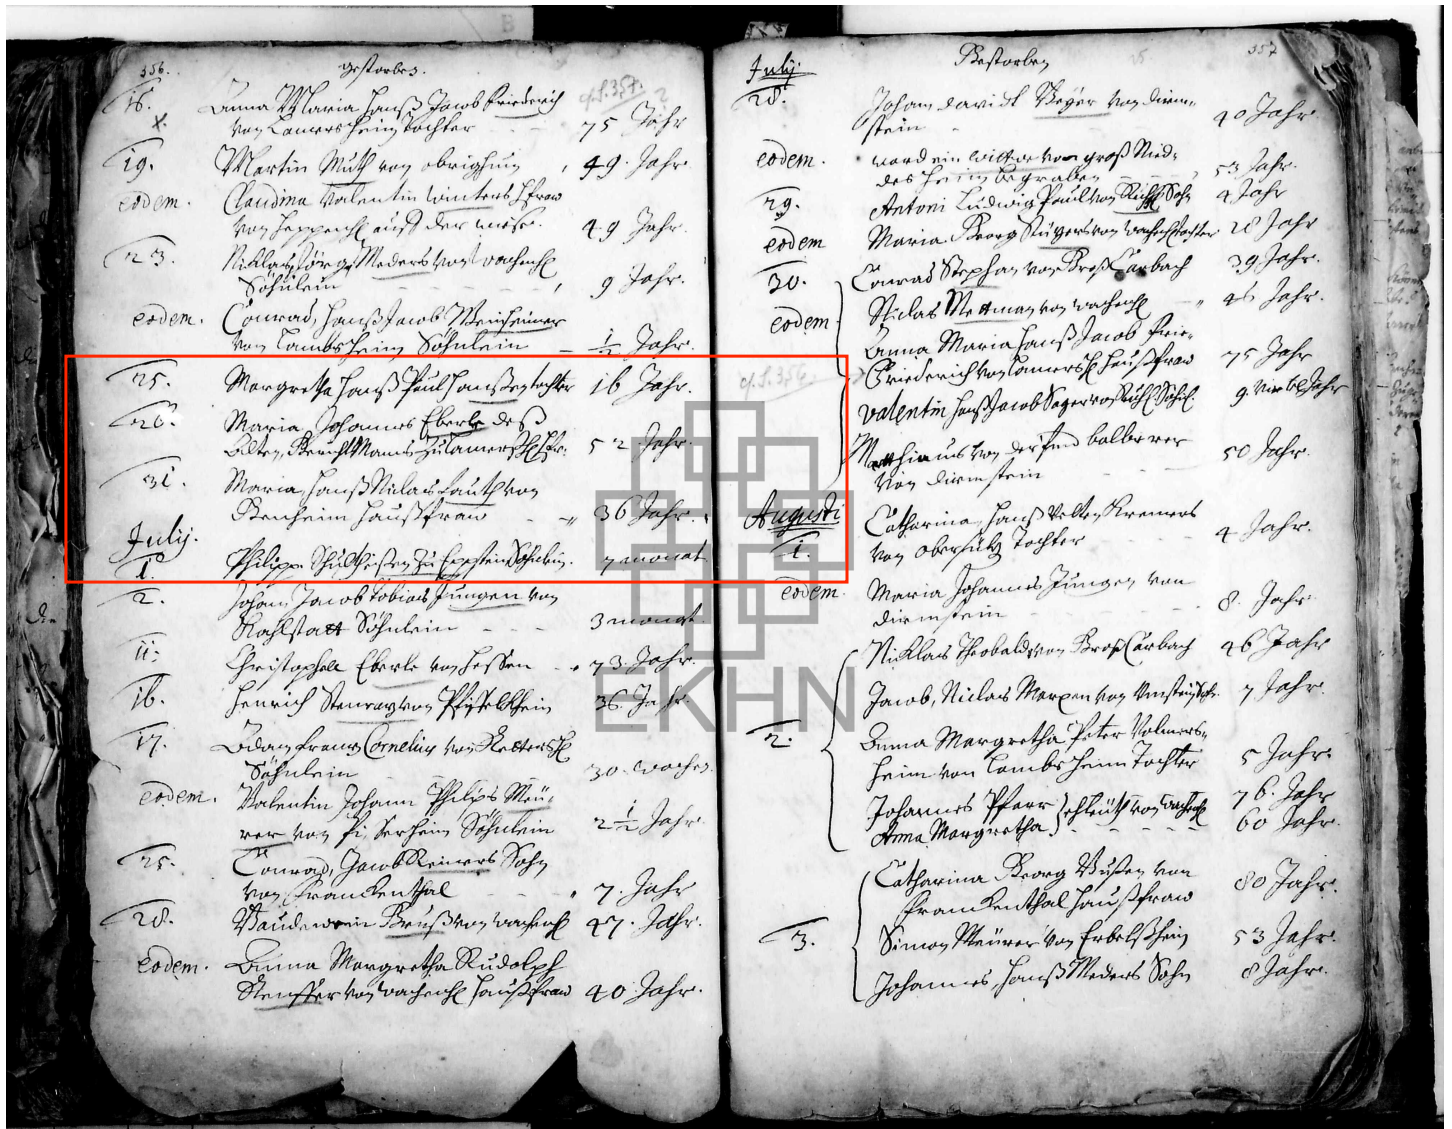 356.
gestorben.
cf. S. 357.
16.
Anna Maria Hanß Jacob Friederich
von Lamersheim tochter 75 Jahr
19.
Martin Muth von obrigheim, 49. Jahr.
eodem.
Claudina Valentin Winters hfraw
von Heppenh. auß der wise. 49 Jahr.
23.
Niklas Jörg Meders von Lachenh.
Söhnlein, 9 Jahr.
eodem.
Conrad, Hanß Jacob Weinheimer
von Lambsheim Söhnlein ½ Jahr.
25.
Margretha Hanß Paul Hanßen tochter 16 Jahr.
26.
Maria, Johannes Eberle deß
Alten, Gericht Mans zu Lamersh. hfr. 52 Jahr.
31.
Maria, Hanß Niclas Lauth von
Benheim Haußfraw 36 Jahr.
Julij.
1.
Philipp Schultheßen zu Eppstein Söhnlein. 7 monat
2.
Johann Jacob Tobias Jungen von
Kahlstatt Söhnlein 3 monat.
11.
Christophell Eberle von Hessen 73. Jahr.
16.
Henrich Stenray von 36. Jahr.
17.
Adam Frantz Cornelius von
Söhnlein 30. wochen.
eodem.
Valentin Johann Philips Meü-
rer von Söhnlein 2½ Jahr.
25.
Conrad, Jacob Reiners Sohn
von Franckenthal 7. Jahr
28.
Bauderwein Greuß von Lachenh. 47. Jahr.
eodem.
Anna Margretha Rudolph
Stenffer von Lachenh. Haußfraw 40. Jahr.
357
Gestorben
July.
28.
Johann David Beÿer von Dirm-
stein 40 Jahr.
eodem.
ward ein wittwe von groß Nied-
desheim begraben, 53 Jahr.
29.
Antoni Ludwig Paul von Sohn 4 Jahr
eodem
Maria. Georg Stügers von Lachenh. tochter 28 Jahr
30.
Conrad Stephan von Groß Carbach 39 Jahr.
eodem
Niclas Mettman von Lachenh. 46 Jahr.
Anna Maria Hanß Jacob Frie-
cf. S. 356.
Friederich von Lamersh. Haußfraw 75 Jahr
Valentin Hanß Jacob Sager von Söhnl. 9. viertel Jahr
Matthiaus von der balbierer
von Dirmstein 50 Jahr.
Augusti
1.
Catharina, Hanß Velten Kremers
von Obersültz Tochter 4 Jahr.
eodem.
Maria Johannes Jungen von
Dirmstein 8. Jahr
Niklas Theobald von Groß Carbach 46 Jahr
Jacob, Niclas Merxen von Sohn. 7 Jahr.
2.
Anna Margretha Peter Volmers-
heim von Lambsheim Tochter 5 Jahr.
Johannes Pfarr 76. Jahr
Anna Margretha } Ehleüth von Lachenh. 60 Jahr.
Catharina Georg Bußen von
Franckenthal Haußfraw 80 Jahr.
3.
Simon Meürer von Erbelßheim 53 Jahr.
Johannes, Hanß Meders Sohn 8 Jahr.
EKHN